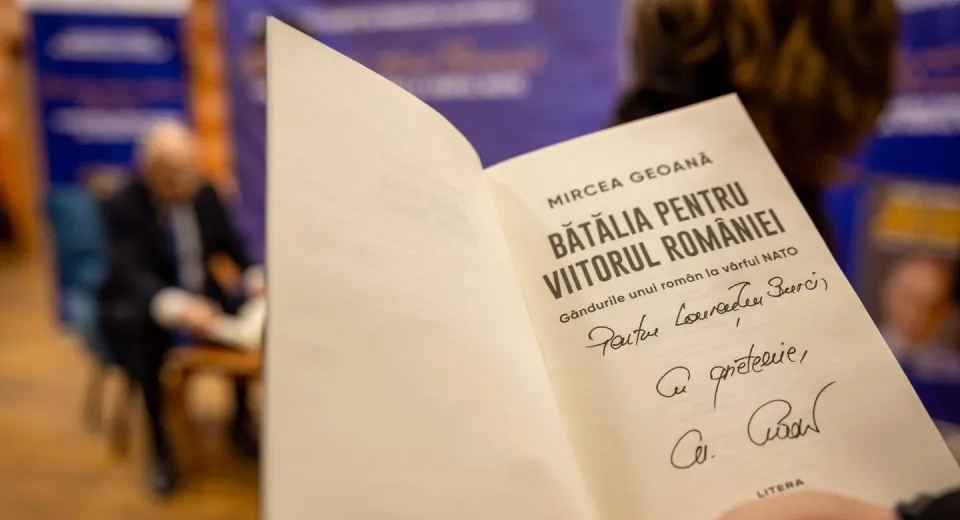 MIRCEA GEOANĂ
BĂTĂLIA PENTRU
VIITORUL ROMÂNIEI
Gândurile unui român la vârful NATO
Pentru Laurențiu
Cu prietenie,
LITERA